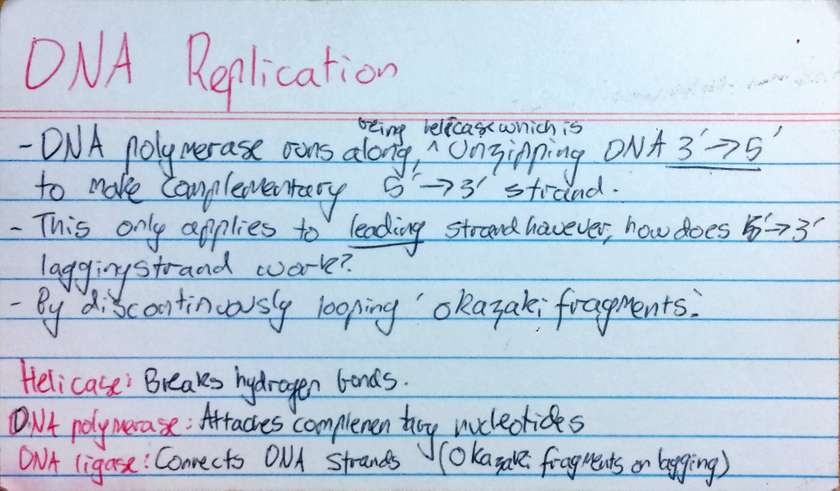 DNA Replication
being helicase which is
- DNA polymerase runs along, ^ unzipping DNA 3' → 5'
to make complementary 5' → 3' strand.
- This only applies to leading strand however, how does 5' → 3'
lagging strand work?
- By discontinuously looping 'okazaki fragments'.
Helicase: Breaks hydrogen bonds.
DNA polymerase: Attaches complementary nucleotides
DNA ligase: Connects DNA strands (Okazaki fragments on lagging)